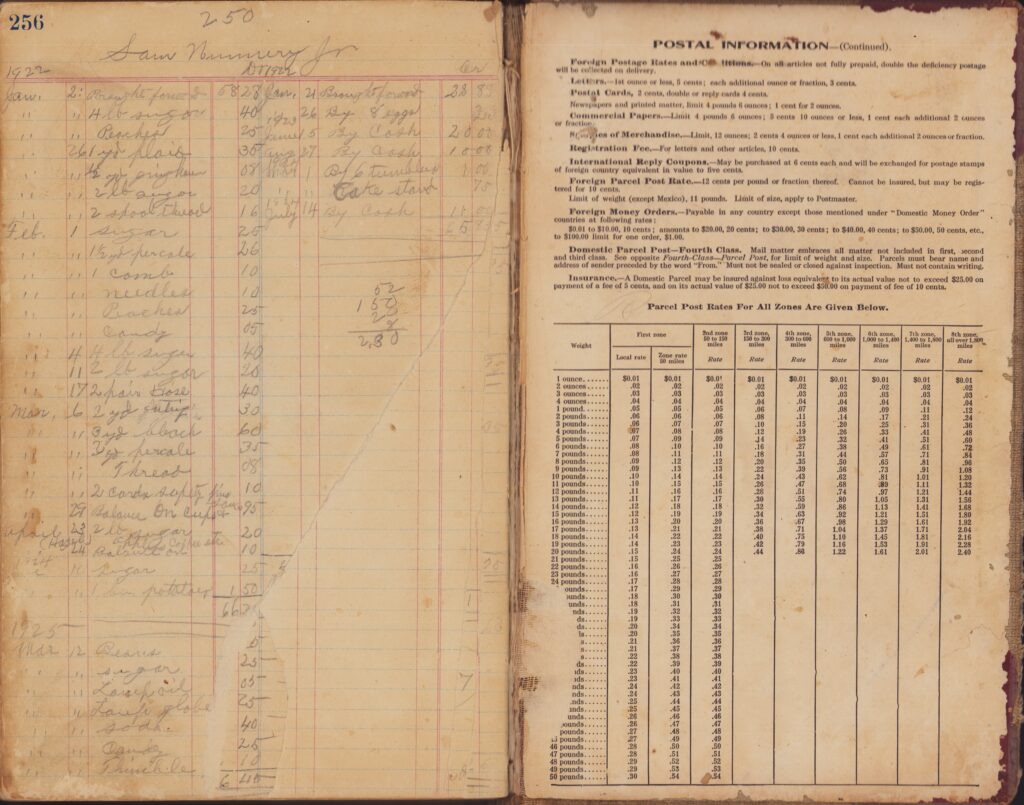 256
250
Sam Nunnery Jr
1922 Dr 1922 Cr
Jan. 2 Brought forward 58 28 Jan. 21 Brought forward 28 83
" " 4 lb sugar 40 1923 26 By 8 eggs
" " Peaches 25 June 5 By Cash 20 00
" 26 1 yd plaid 30 Aug 27 By Cash 10 00
" " 08 1 By 6 tumblers 1 00
" " 2 lb sugar 20 Cake stand 75
" " 2 spool thread 16 July 14 By Cash
Feb. 1 sugar 25
" " 1½ yd percale 26
" " 1 comb 10
" " needles 10
" " Peaches 25
" " Candy 05
52
150
2.30
" 4 4 lb sugar 40
" 11 2 lb sugar 20
" 17 2 pair hose 40
Mar. 6 2 yd 30
" " 3 yd bleach 60
" " 3 yd percale 35
" " Thread 08
" " 2 cards safety pins 10
" 29 Balance on 95
April 23 2 lb sugar 20
24 10
" sugar 25
" potatoes 1 50
1925
Mar 12 Beans
" " sugar 25
" " Lamp oil 05
" " Lamp globe 25
" " soda 40
" " Candy 25
" " Thimble 10
POSTAL INFORMATION—(Continued).
Foreign Postage Rates and Conditions.—On all articles not fully prepaid, double the deficiency postage
will be collected on delivery.
Letters.—1st ounce or less, 5 cents; each additional ounce or fraction, 3 cents.
Postal Cards, 2 cents, double or reply cards 4 cents.
Newspapers and printed matter, limit 4 pounds 6 ounces; 1 cent for 2 ounces.
Commercial Papers.—Limit 4 pounds 6 ounces; 5 cents 10 ounces or less, 1 cent each additional 2 ounces
or fraction.
Samples of Merchandise.—Limit, 12 ounces; 2 cents 4 ounces or less, 1 cent each additional 2 ounces or fraction.
Registration Fee.—For letters and other articles, 10 cents.
International Reply Coupons.—May be purchased at 6 cents each and will be exchanged for postage stamps
of foreign country equivalent in value to five cents.
Foreign Parcel Post Rate.—12 cents per pound or fraction thereof. Cannot be insured, but may be regis-
tered for 10 cents.
Limit of weight (except Mexico), 11 pounds. Limit of size, apply to Postmaster.
Foreign Money Orders.—Payable in any country except those mentioned under "Domestic Money Order"
countries at following rates:
$0.01 to $10.00, 10 cents; amounts to $20.00, 20 cents; to $30.00, 30 cents; to $40.00, 40 cents; to $50.00, 50 cents, etc.,
to $100.00 limit for one order, $1.00.
Domestic Parcel Post—Fourth Class. Mail matter embraces all matter not included in first, second
and third class. See opposite Fourth-Class—Parcel Post, for limit of weight and size. Parcels must bear name and
address of sender preceded by the word "From." Must not be sealed or closed against inspection. Must not contain writing.
Insurance.—A Domestic Parcel may be insured against loss equivalent to its actual value not to exceed $25.00 on
payment of a fee of 5 cents, and on its actual value of $25.00 not to exceed $50.00 on payment of fee of 10 cents.
Parcel Post Rates For All Zones Are Given Below.
Weight First zone 2nd zone, 50 to 150 miles 3rd zone, 150 to 300 miles 4th zone, 300 to 600 miles 5th zone, 600 to 1,000 miles 6th zone, 1,000 to 1,400 miles 7th zone, 1,400 to 1,800 miles 8th zone, all over 1,800 miles
Local rate Zone rate 50 miles Rate Rate Rate Rate Rate Rate Rate
1 ounce $0.01 $0.01 $0.01 $0.01 $0.01 $0.01 $0.01 $0.01 $0.01
2 ounces .02 .02 .02 .02 .02 .02 .02 .02 .02
3 ounces .03 .03 .03 .03 .03 .03 .03 .03 .03
4 ounces .04 .04 .04 .04 .04 .04 .04 .04 .04
1 pound .05 .05 .05 .06 .07 .08 .09 .11 .12
2 pounds .06 .06 .06 .08 .11 .14 .17 .21 .24
3 pounds .06 .07 .07 .10 .15 .20 .25 .31 .36
4 pounds .07 .08 .08 .12 .19 .26 .33 .41 .48
5 pounds .07 .09 .09 .14 .23 .32 .41 .51 .60
6 pounds .08 .10 .10 .16 .27 .38 .49 .61 .72
7 pounds .08 .11 .11 .18 .31 .44 .57 .71 .84
8 pounds .09 .12 .12 .20 .35 .50 .65 .81 .96
9 pounds .09 .13 .13 .22 .39 .56 .73 .91 1.08
10 pounds .10 .14 .14 .24 .43 .62 .81 1.01 1.20
11 pounds .10 .15 .15 .26 .47 .68 .89 1.11 1.32
12 pounds .11 .16 .16 .28 .51 .74 .97 1.21 1.44
13 pounds .11 .17 .17 .30 .55 .80 1.05 1.31 1.56
14 pounds .12 .18 .18 .32 .59 .86 1.13 1.41 1.68
15 pounds .12 .19 .19 .34 .63 .92 1.21 1.51 1.80
16 pounds .13 .20 .20 .36 .67 .98 1.29 1.61 1.92
17 pounds .13 .21 .21 .38 .71 1.04 1.37 1.71 2.04
18 pounds .14 .22 .22 .40 .75 1.10 1.45 1.81 2.16
19 pounds .14 .23 .23 .42 .79 1.16 1.53 1.91 2.28
20 pounds .15 .24 .24 .44 .83 1.22 1.61 2.01 2.40
21 pounds .15 .25 .25
22 pounds .16 .26 .26
23 pounds .16 .27 .27
24 pounds .17 .28 .28
ounds .17 .29 .29
unds .18 .30 .30
unds .18 .31 .31
nds .19 .32 .32
ds .19 .33 .33
ds .20 .34 .34
ls .20 .35 .35
s .21 .36 .36
s .21 .37 .37
s .22 .38 .38
ds .22 .39 .39
ds .23 .40 .40
ds .23 .41 .41
nds .24 .42 .42
nds .24 .43 .43
nds .25 .44 .44
nds .25 .45 .45
unds .26 .46 .46
ounds .26 .47 .47
pounds .27 .48 .48
pounds .27 .49 .49
46 pounds .28 .50 .50
47 pounds .28 .51 .51
48 pounds .29 .52 .52
49 pounds .29 .53 .53
50 pounds .30 .54 .54